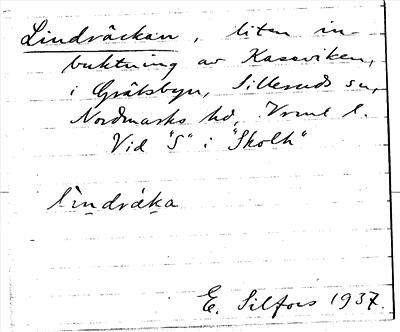 Lindräckan, liten in-
buktning av Kassviken,
i Gräsbyn, Silleruds sn,
Nordmarks hd, Vrml l.
Vid "S" i "Skolh"
lindräka
E. Silfors 1937.